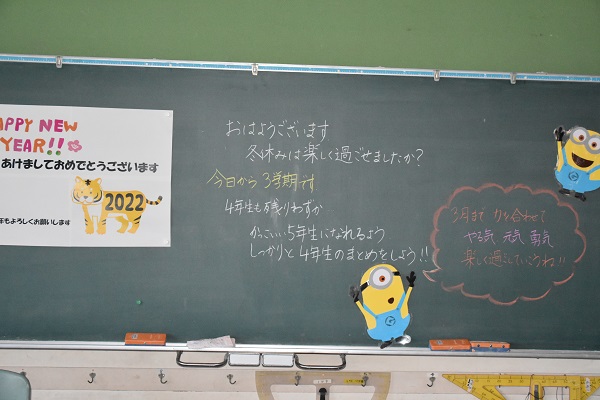 APPY NEW
YEAR!!
あけましておめでとうございます
2022
年もよろしくお願いします
おはようございます
冬休みは楽しく過ごせましたか?
今日から3学期です
4年生も残りわずか
かっこいい5年生になれるよう
しっかりと4年生のまとめをしよう!!
3月まで力を合わせて
やる気 元気 勇気
楽しく過ごしていこうね!!